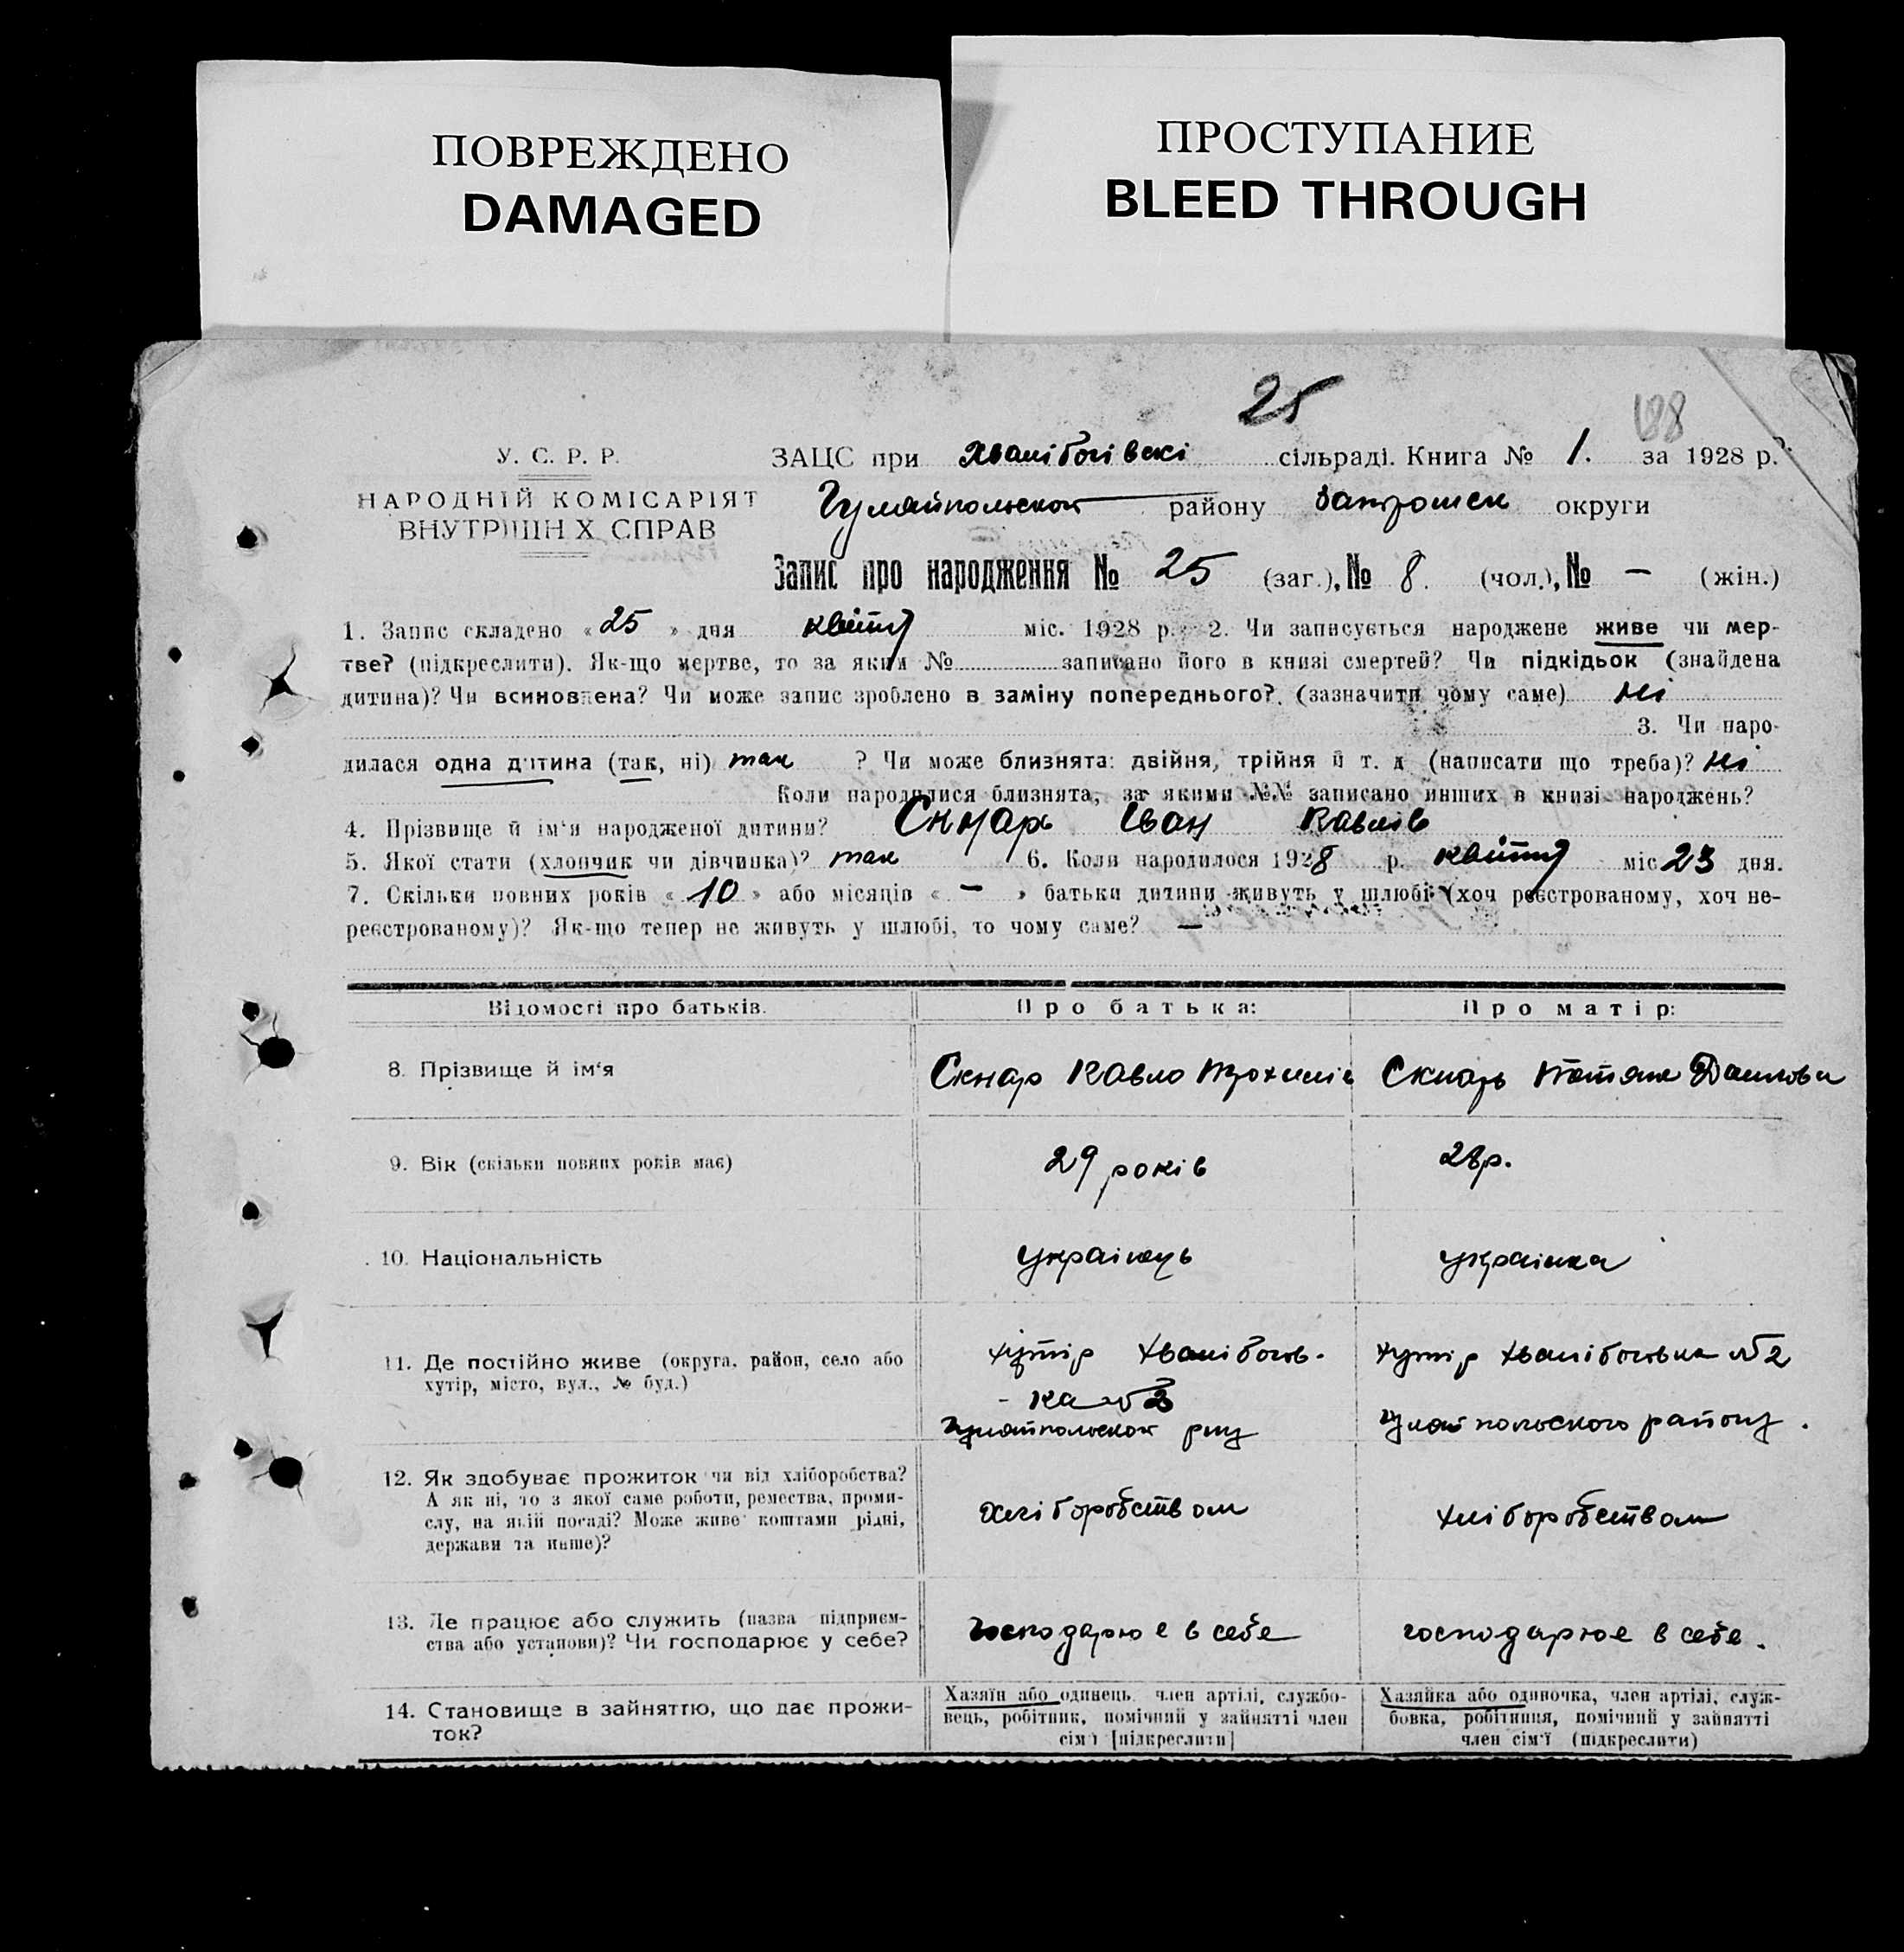 ПОВРЕЖДЕНО
DAMAGED
ПРОСТУПАНИЕ
BLEED THROUGH
25
188
У. С. Р. Р.
НАРОДНІЙ КОМІСАРІЯТ
ВНУТРІШН Х СПРАВ
ЗАЦС при Хвалібогівскі сільраді. Книга № 1. за 1928 р.
Гуляйпольском району Запорошск округи
Запис про народження № 25 (заг.), № 8. (чол.), № — (жін.)
1. Запис складено «25» дня квітня міс. 1928 р. 2. Чи записується народжене живе чи мер-
тве? (підкреслити). Як-що мертве, то за яким № записано його в книзі смертей? Чи підкідьок (знайдена
дитина)? Чи всиновлена? Чи може запис зроблено в заміну попереднього? (зазначити чому саме) ні
3. Чи наро-
дилася одна дитина (так, ні) так ? Чи може близнята: двійня, трійня й т. д (написати що треба)? ні
Коли народилися близнята, за якими №№ записано инших в книзі народжень?
4. Прізвище й ім'я народженої дитини? Скнарь Іван Павлів
5. Якої стати (хлопчик чи дівчинка)? так 6. Коли народилося 1928 р. квітня міс 23 дня.
7. Скільки повних років «10» або місяців « — » батьки дитини живуть у шлюбі (хоч реєстрованому, хоч не-
реєстрованому)? Як-що тепер не живуть у шлюбі, то чому саме? —
Відомості про батьків.
Про батька:
Про матір:
8. Прізвище й ім'я
Скнар Павло Трохимів
Скнарь Тетяна Данилова
9. Вік (скільки повних років має)
29 років
28 р.
10. Національність
українець
українка
11. Де постійно живе (округа, район, село або
хутір, місто, вул., № буд.)
хутір Хвалібогов-
- ка №2
Гуляйпольском р-ну
хутір Хвалібоговка №2
Гуляйпольского району.
12. Як здобуває прожиток чи від хліборобства?
А як ні, то з якої саме роботи, ремества, проми-
слу, на якій посаді? Може живе коштами рідні,
держави та инше)?
Хліборобством
хліборобством
13. Де працює або служить (назва підприєм-
ства або установи)? Чи господарює у себе?
Господарює в себе
господарює в себе.
14. Становище в зайняттю, що дає прожи-
ток?
Хазяїн або одинець, член артілі, службо-
вець, робітник, помічний у зайнятті член
сім'ї [підкреслити]
Хазяйка або одиночка, член артілі, служ-
бовка, робітниця, помічний у зайнятті
член сім'ї (підкреслити)